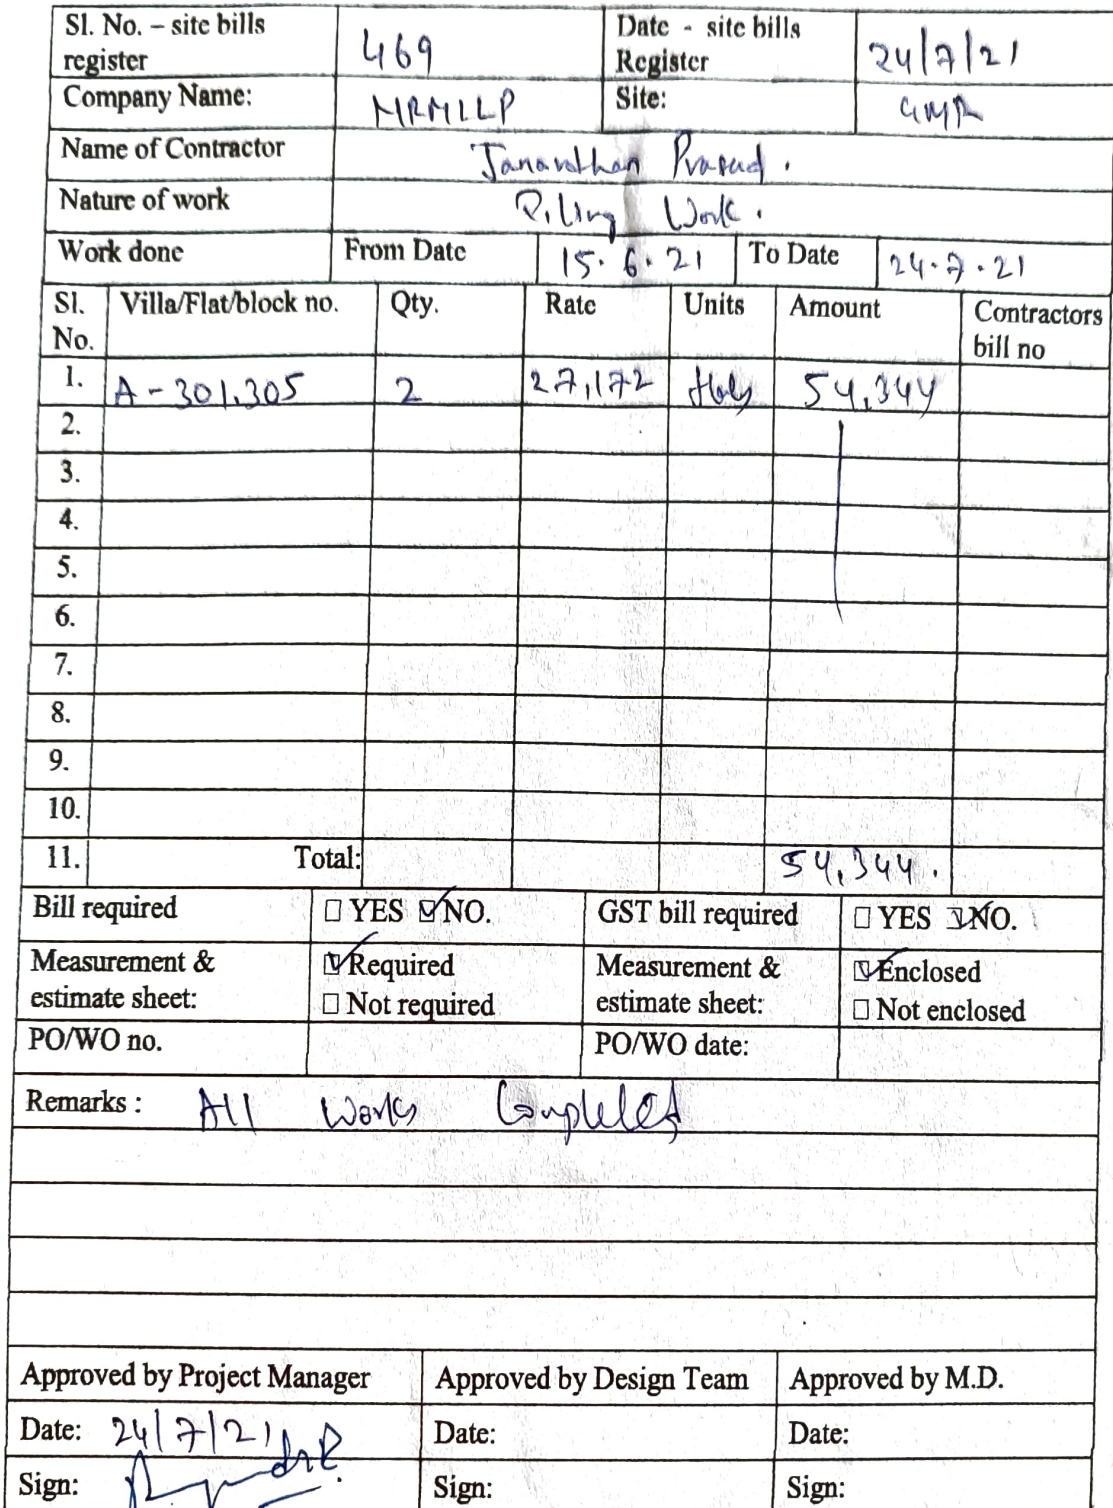 Sl. No. – site bills register 469 Date - site bills Register 24/7/21
Company Name: MRMLLP Site: GMR
Name of Contractor Janarathan Prasad.
Nature of work Piling Work.
Work done From Date 15.6.21 To Date 24.7.21
Sl. No. Villa/Flat/block no. Qty. Rate Units Amount Contractors bill no
1. A-301,305 2 27,172 54,344
2.
3.
4.
5.
6.
7.
8.
9.
10.
11. Total: 54,344.
Bill required ☐ YES ☑ NO. GST bill required ☐ YES ☑ NO.
Measurement & estimate sheet: ☑ Required Measurement & estimate sheet: ☑ Enclosed
☐ Not required ☐ Not enclosed
PO/WO no. PO/WO date:
Remarks : All Works Completed
Approved by Project Manager Approved by Design Team Approved by M.D.
Date: 24/7/21 Date: Date:
Sign: Sign: Sign: